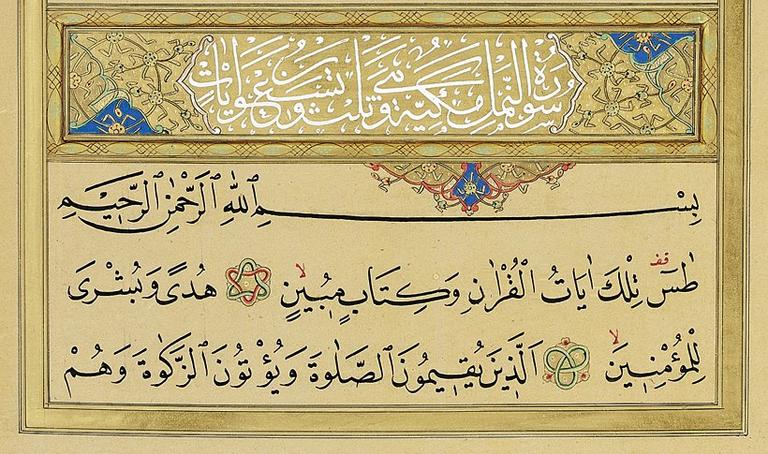 سورة النمل مكية وهي ثلث وتسعون ايات
بِسْمِ اللهِ الرَّحْمٰنِ الرَّحِيمِ
طٰسٓ قف تِلْكَ اٰيَاتُ الْقُرْاٰنِ وَكِتَابٍ مُبِينٍ لا هُدًى وَبُشْرَى
لِلْمُؤْمِنِينَ لا اَلَّذِينَ يُقِيمُونَ الصَّلٰوةَ وَيُؤْتُونَ الزَّكٰوةَ وَهُمْ